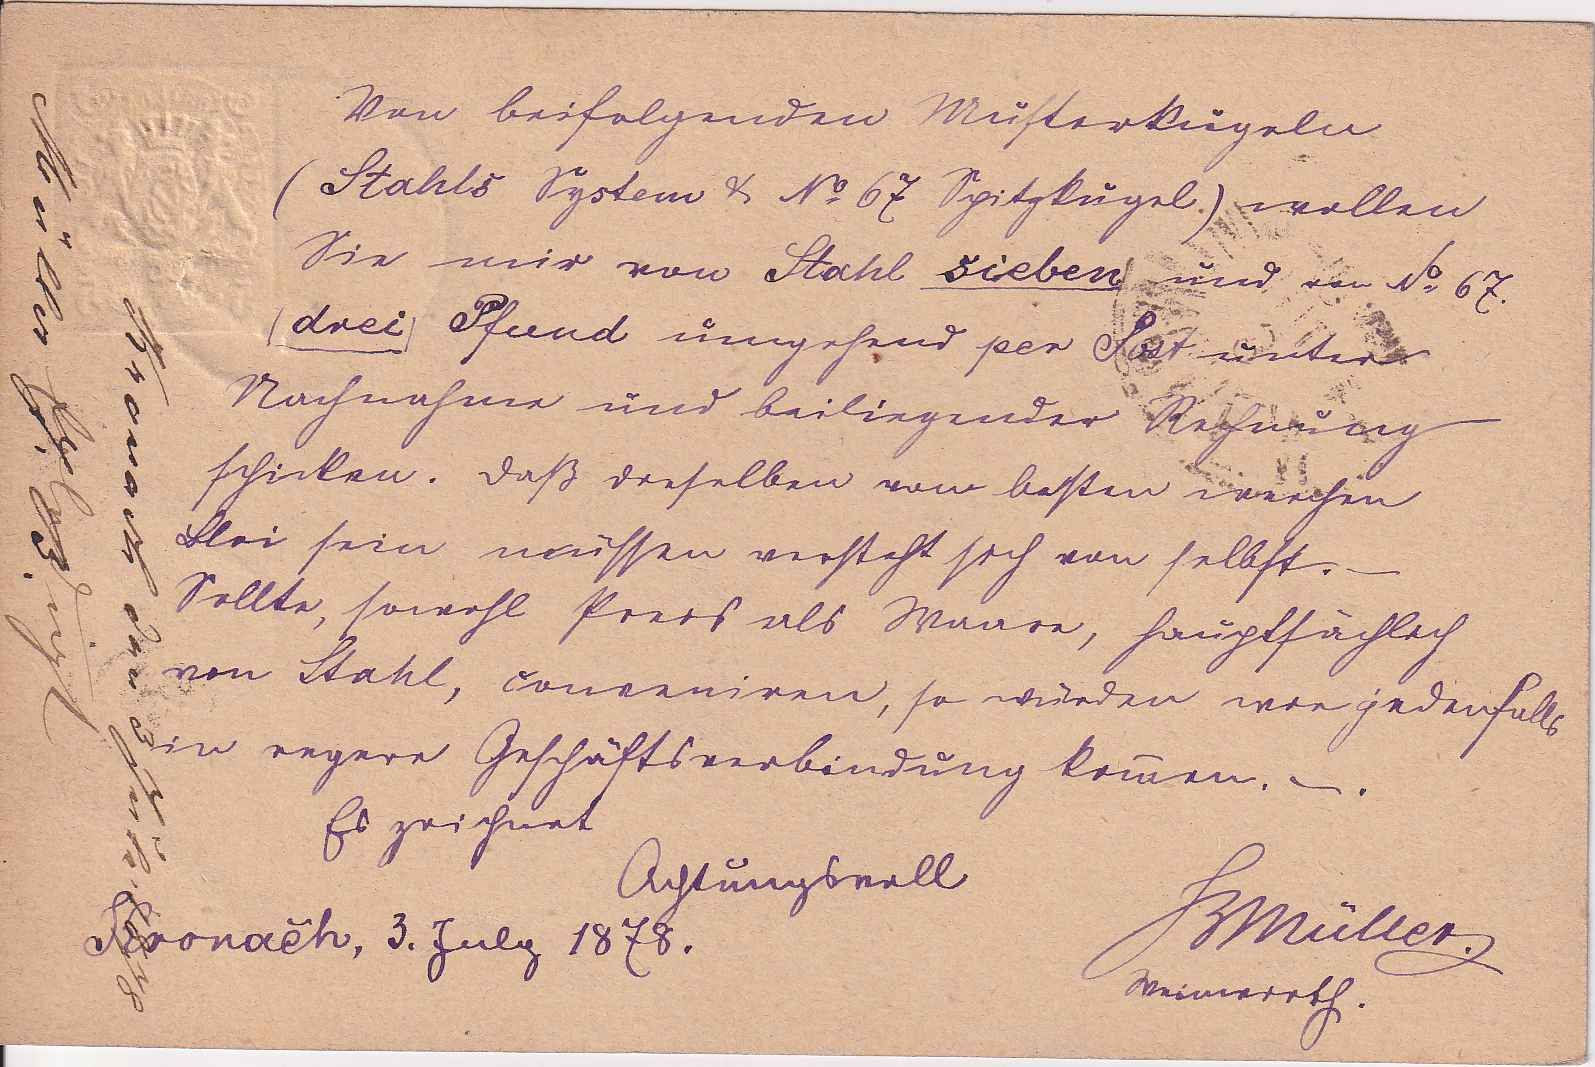 Von beifolgenden Musterkugeln
(Stahls System & No. 67 Spitzkugel) wollen
Sie mir von Stahl sieben und von No. 67.
(drei) Pfund umgehend per Post unter
Nachnahme und beiliegender Rechnung
schicken. Daß dieselben vom besten weichen
Blei sein müssen versteht sich von selbst. —
Sollte, sowohl Preis als Waare, hauptsächlich
von Stahl, conveniren, so würden wir jedenfalls
in regere Geschäftsverbindung kommen. —.
Es zeichnet
Achtungsvoll
Kronach, 3. July 1878.
Müller.
Kronach den 3 Juli 1878
Müller